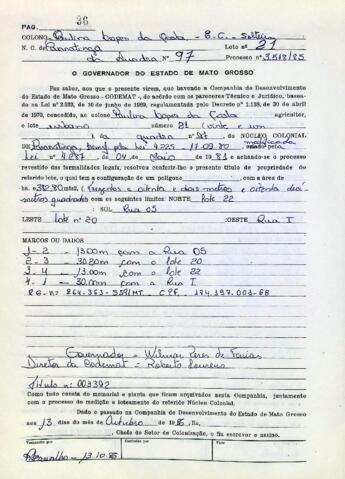 PAG. 36
COLONO Paulina Lopes da Costa - B.C. - Solteira
N. C. de Paranatinga Lote nº 21
da Quadra Nº 97 Processo nº 3.518/85
O GOVERNADOR DO ESTADO DE MATO GROSSO
Faz saber, aos que a presente virem, que havendo a Companhia de Desenvolvimento
do Estado de Mato Grosso - CODEMAT -, de acordo com os pareceres Técnico e Jurídico, basea-
do na Lei nº 2.933, de 10 de junho de 1969, regulamentada pelo Decreto nº 1.138, de 30 de abril
de 1970, concedido ao colono Paulina Lopes da Costa agricultor,
o lote urbano número 21 (vinte e um
) da quadra nº 97 NÚCLEO COLONIAL
DE Paranatinga, criado pela Lei 4.225 17.09.80 modificada
Lei nº 4.287 de 04 de Maio de 1981 e achando-se o processo
revestido das formalidades legais, resolveu conferir-lhe o presente título de propriedade do
referido lote, o qual tem a configuração de um polígono com a área de
ha. e 382,80 mts2, (trezentos e oitenta e dois metros e oitenta deci-
metros quadrados com os seguintes limites: NORTE lote 22
SUL Rua 05
LESTE lote nº 20 :OESTE Rua I
MARCOS OU DADOS
1 - 2 - 13.00m com a Rua 05
2 - 3 - 30.20m com o lote 20
3 - 4 - 13.00m com o lote 22
4 - 1 - 30.00m com a Rua I
Governador = Wilmar Peres de Farias
Diretor da Codemat = Roberto Loureiro
Título nº 003392
Como tudo consta do memorial e planta que ficam arquivados nesta Companhia, juntamente
com o processo de medição e loteamento do referido Núcleo Colonial.
Dado e passado na Companhia de Desenvolvimento do Estado de Mato Grosso
aos 13 dias do mês de Outubro de 1986, Eu,
, Chefe do Setor de Colonização, o fiz escrever e assino.
Carvalho - 13.10.86